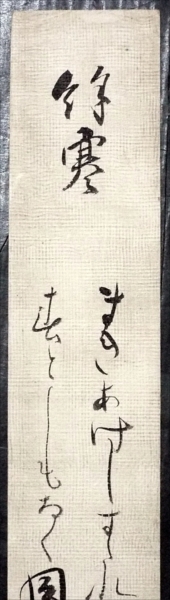 餘寒
まきあけしすたれ
春としもなく